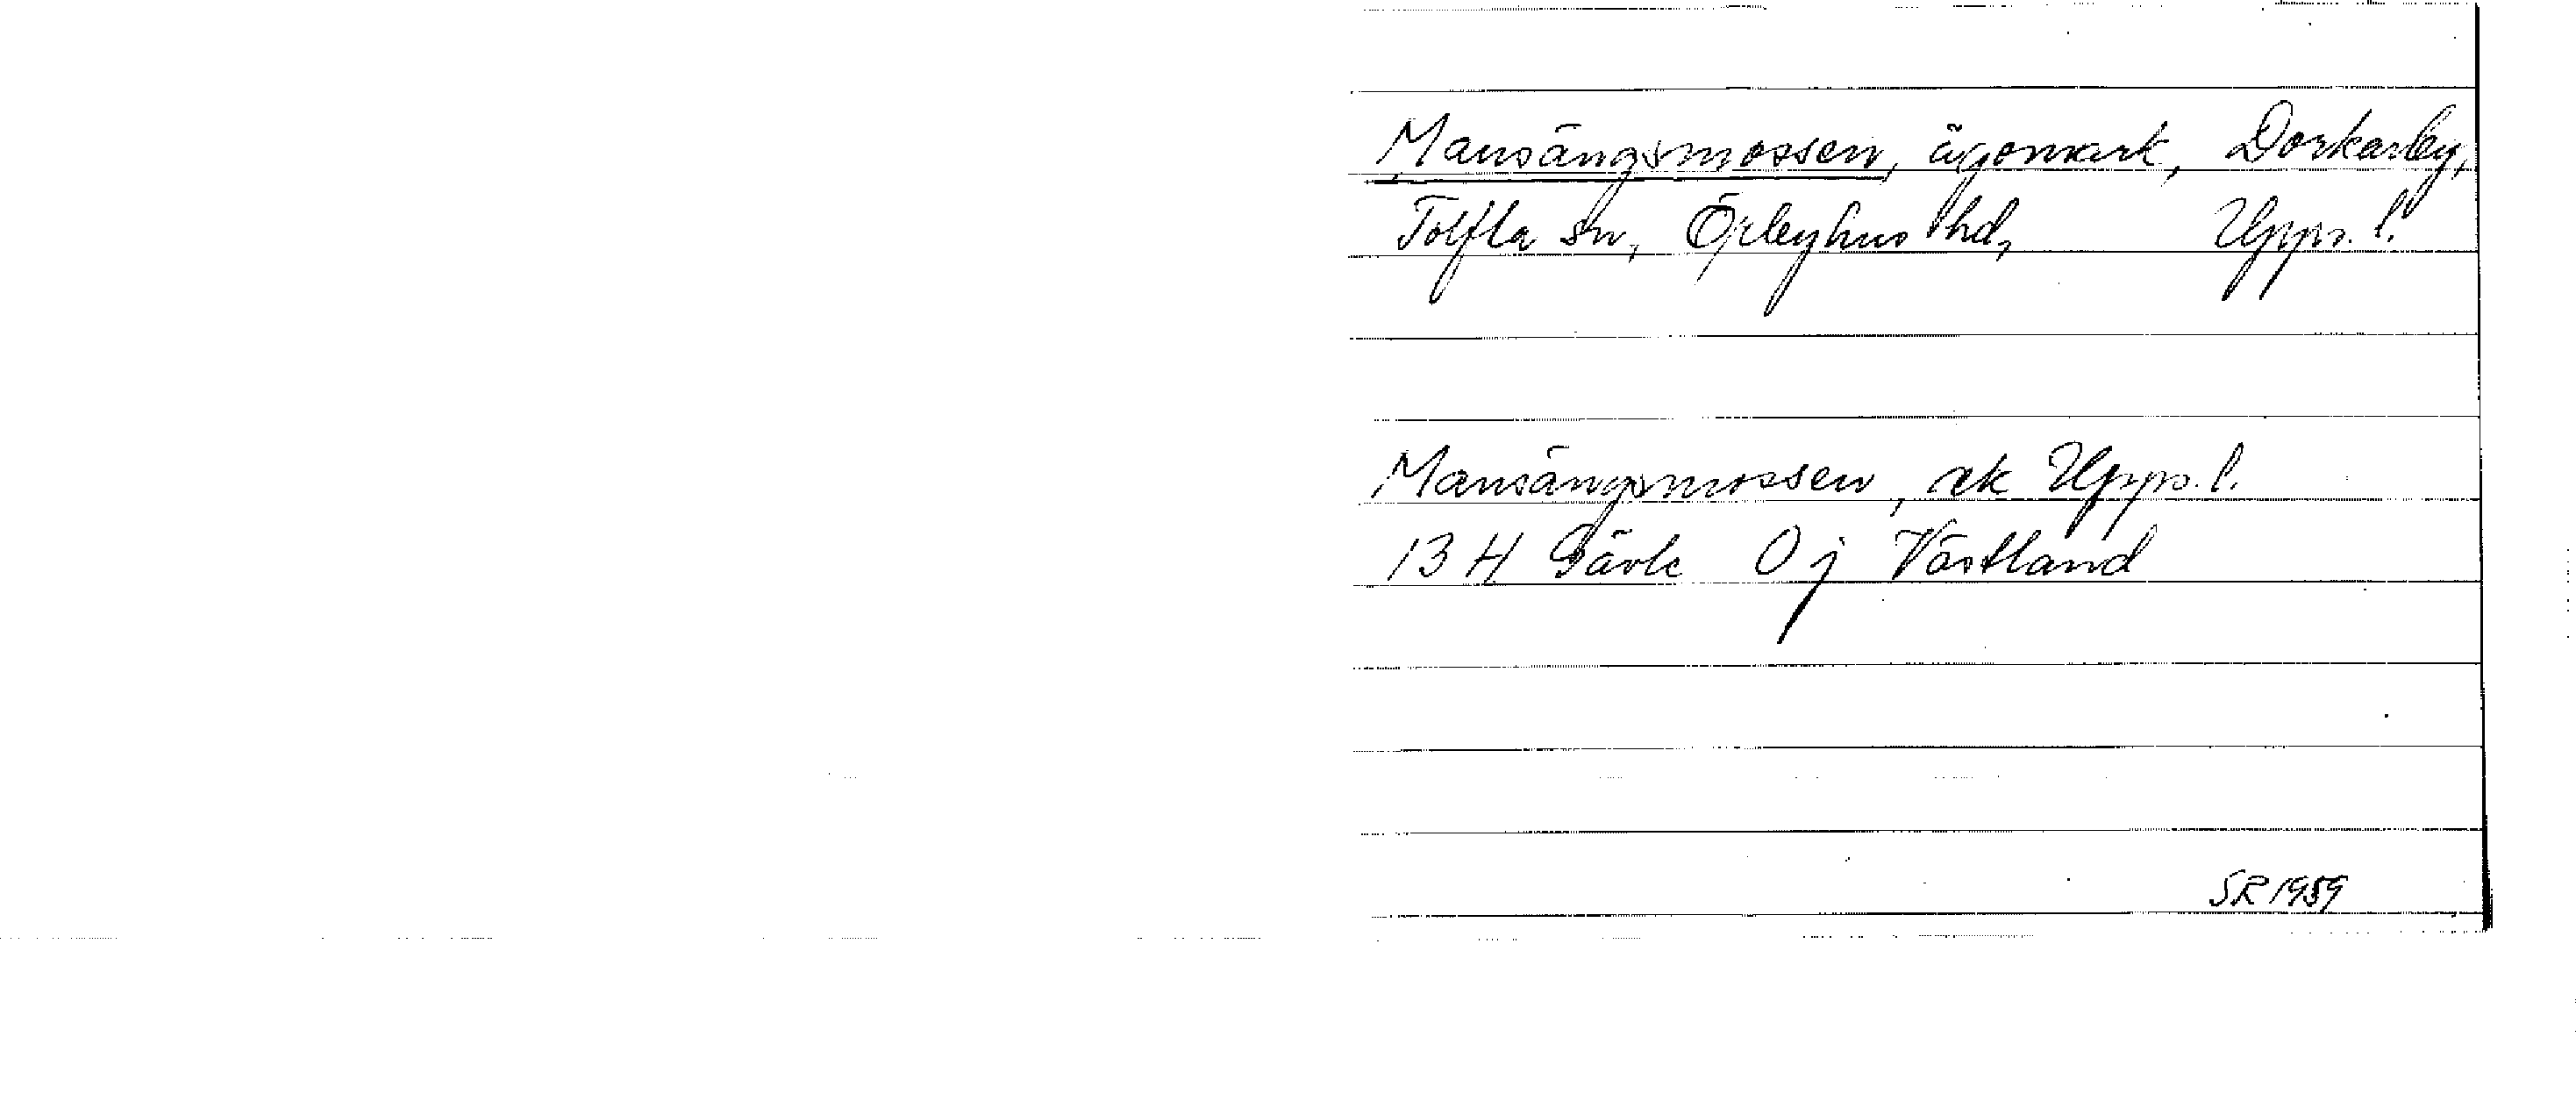 Mansängsmossen, ägomark, Dorkarby,
Tolfta sn, Örbyhus hd, Upps. l.
Mansängsmossen, ek Upps. l.
13 H Gävle 0 j Västland
SR 1959